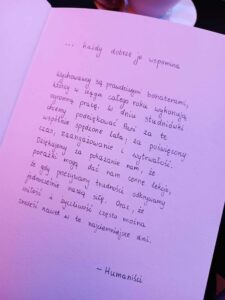 ... każdy dobrze je wspomina
Wychowawcy są prawdziwymi bohaterami,
którzy w ciągu całego roku wykonują
ogromną pracę. W dniu studniówki
chcemy podziękować Pani za te
wspólnie spędzone lata, za poświęcony
czas, zaangażowanie i wytrwałość.
Dziękujemy za pokazanie nam, że
porażki mogą dać nam cenne lekcje,
że gdy przeżywamy trudności odkrywamy
jednocześnie naszą siłę. Oraz, że
miłość i życzliwość często można
znaleźć nawet w te najciemniejsze dni.
- Humaniści